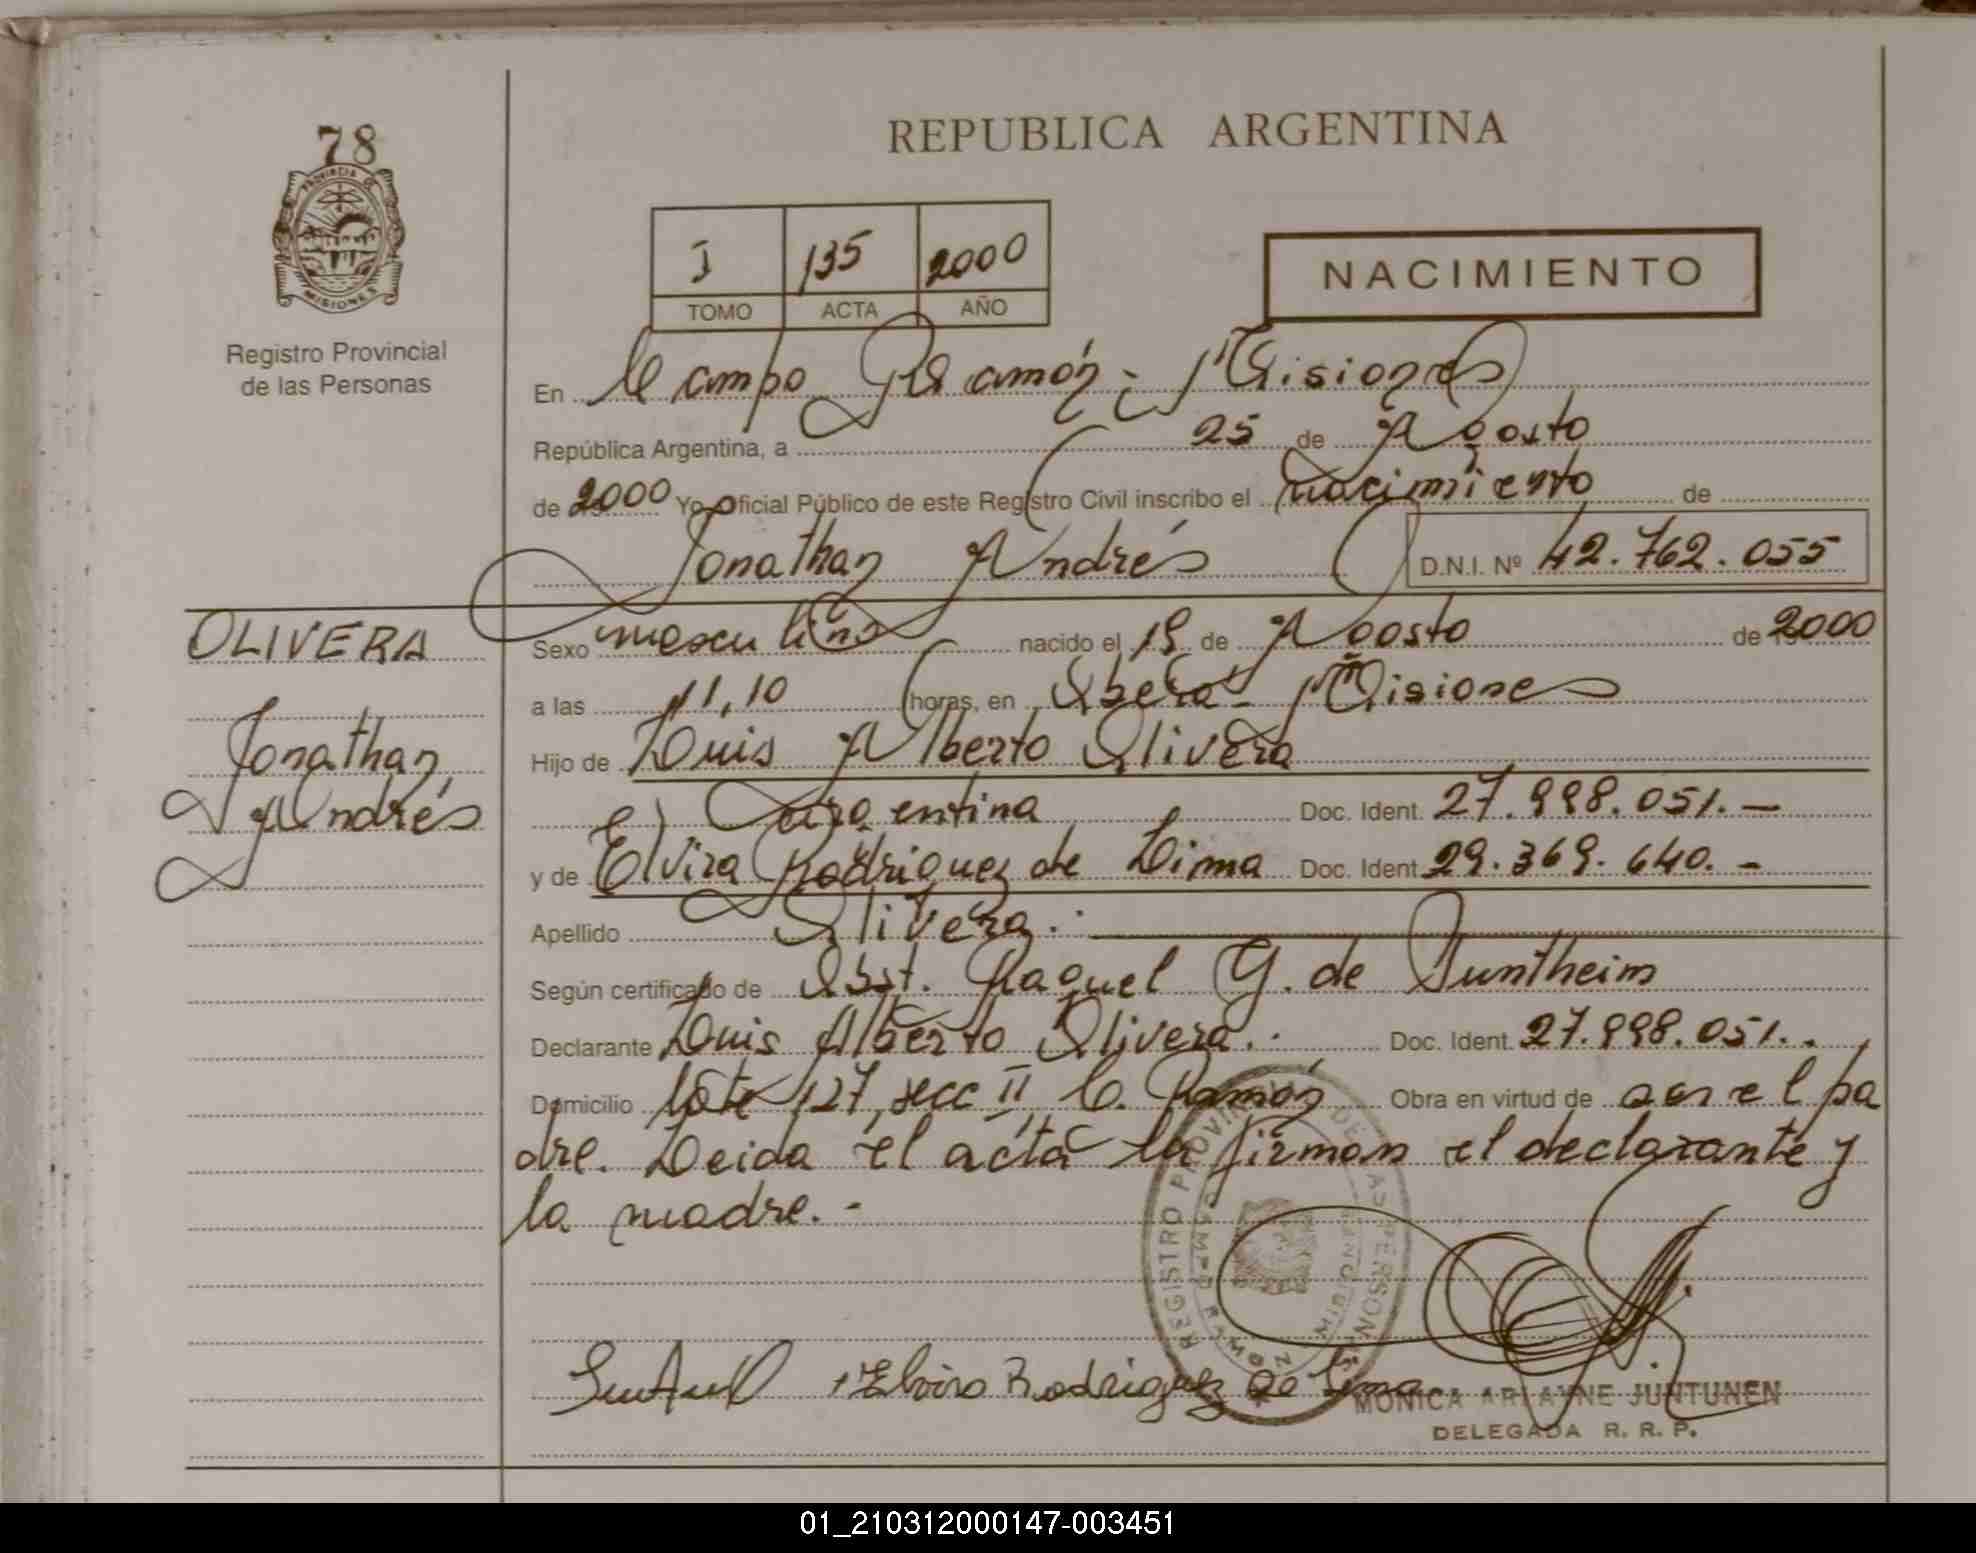 78
PROVINCIA DE
MISIONES
Registro Provincial
de las Personas
REPUBLICA ARGENTINA
I 135 2000
TOMO ACTA AÑO
NACIMIENTO
En Campo Ramón - Misiones
República Argentina, a 25 de Agosto
de 2000 Yo Oficial Público de este Registro Civil inscribo el nacimiento de
Jonathan Andrés D.N.I. Nº 42.762.055
OLIVERA
Jonathan
Andrés
Sexo masculino nacido el 19 de Agosto de 2000
a las 11,10 horas, en Oberá - Misiones
Hijo de Luis Alberto Olivera
argentina Doc. Ident. 27.998.051.-
y de Elvira Rodriguez de Lima Doc. Ident. 29.369.640.-
Apellido Olivera.-
Según certificado de Obst. Raquel G. de
Declarante Luis Alberto Olivera.- Doc. Ident. 27.998.051..
Domicilio lote 127, secc II C. Ramón Obra en virtud de ser el pa
dre. Leida el acta la firman el declarante y
la madre.-
REGISTRO PROVINCIAL DE LAS PERSONAS
CAMPO RAMON
MISIONES
Elvira Rodriguez de Lima
MONICA ARIAYNE JUNTUNEN
DELEGADA R. R. P.
01_210312000147-003451